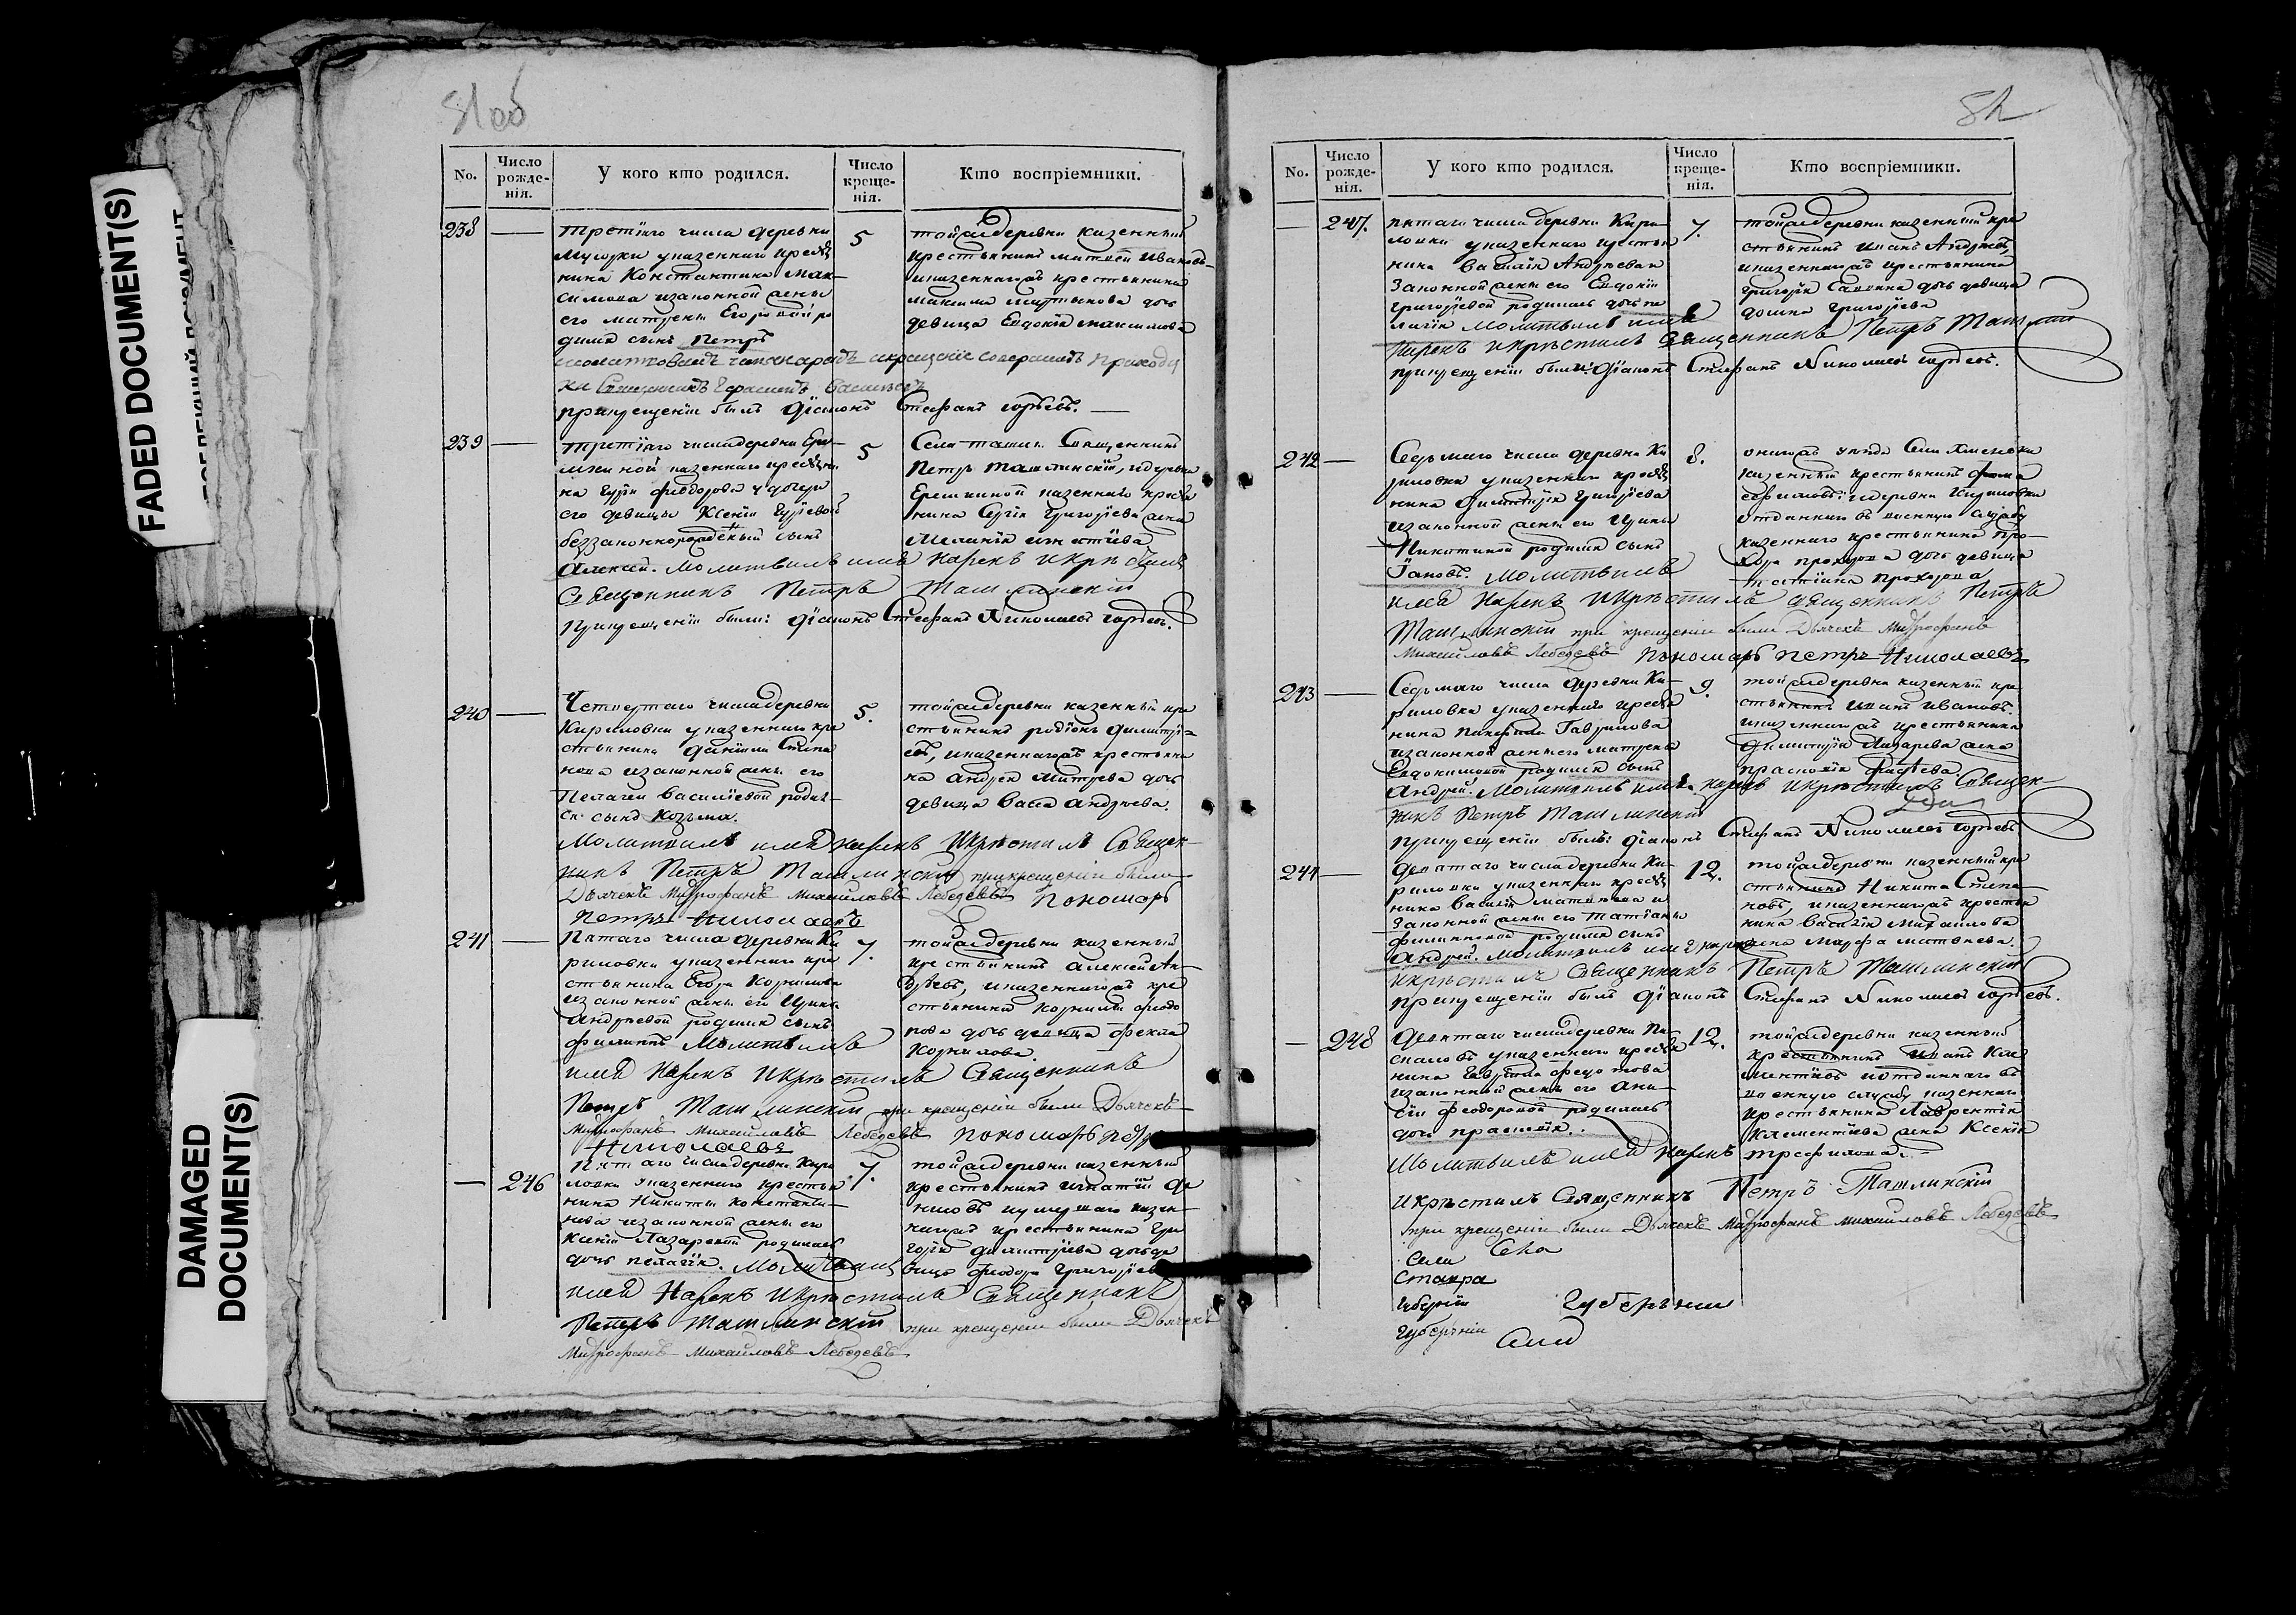 81 об
No.
Число рожде-нія.
У кого кто родился.
Число креще-нія.
Кто воспріемники.
238
третіяго числа деревни
у казеннаго кресть
нина Константина Мак-
симова изаконной жены
его матрены Егоровой ро
дился сынъ Петръ
5
тойже деревни казенный
крестьянинъ матвей Ивановъ
иказеннагожъ крестьянина
максима дочь
девица Евдокія максимова
молитвовалъ икрещеніе совершалъ приходи
ки Священникъ Герасимъ Васильевъ
прикрещеніи былъ діаконъ Стефанъ гордѣевъ.
239
третіяго числа деревни Ере-
мкиной казеннаго крестьяни
на Гурія феодорова у дочери
его девицы Ксеніи Гуріевой
беззаконнорожденый сынъ
Алексей. Молитвилъ имя Нарекъ Икрѣстилъ
Священникъ Петръ Ташлинскій
прикрещеніи были: діаконъ Стефанъ Николаевъ гордѣевъ.
5
Села ташлы Священникъ
Петръ Ташлинскій, идеревни
Еремкиной казеннаго кресть
нина Сергія Григоріева жена
Меланія игнатіева
240
Четвертаго числа деревни
Кириловки у казеннаго кре
стьянина даніила Степа
нова изаконной жены его
Пелагеи Василіевой родил-
ся сынъ Козьма.
5.
тойже деревни казенный кре
стьянинъ родіонъ димитрі-
евъ, иказеннагожъ крестьяни
на андрея Митрева дочь
девица Васса андрѣева.
Молитвилъ имя нарекъ Икрѣстилъ Священ-
никъ Петръ Ташлинскій прикрещеніи были
Дьячекъ Митрофанъ Михайловъ Лебедевъ Пономарь
Петръ Николаевъ
241
Пятаго числа деревни Ки
риловки у казеннаго кре
стьянина Егора Корнилова
изаконной жены его Ирины
Андрѣевой родился сынъ
филиппъ Молитвилъ
имя Нарекъ Икрѣстилъ Священникъ
Петръ Ташлинскій при крещеніи были Дьячекъ
Митрофанъ Михайловъ Лебедевъ пономарь петръ
Николаевъ
7.
тойже деревни казенный
крестьянинъ алексей Ан-
дрѣевъ, иказеннагожъ кре
стьянина Корнила феодо
рова дочь девица фекла
Корнилова.
246
Пятаго числа деревни Кири
ловки у казеннаго крестья
нина Никиты константи-
нова изаконной жены его
Ксеніи Лазаревой родилась
дочь пелагія. Молитвилъ
имя Нарекъ Икрѣстилъ Священникъ
Петръ Ташлинскій при крещеніи были Дьячекъ
Митрофанъ Михайловъ Лебедевъ
7.
тойже деревни казенный
крестьянинъ игнатій
иумершаго казен-
нагожъ крестьянина Гри
горія димитріева дочь де
вица феодора Григоріева
82
No.
Число рожде-нія.
У кого кто родился.
Число креще-нія.
Кто воспріемники.
247.
пятаго числа деревни Кири
ловки у казеннаго крестья
нина Василія Андрѣева и
Законной жены его Евдокіи
григоріевой родилась дочь пе
лагія Молитвилъ имя
Нарекъ Икрѣстилъ Священникъ Петръ Ташлин
прикрещеніи былъ: діаконъ Стефанъ Николаевъ гордѣевъ.
7.
тойже деревни казенный кре
стьянинъ иванъ Андрѣевъ,
иказеннагожъ крестьянина
григорія дочь девица
домна григоріева
242
Седьмаго числа деревни Ки
риловки у казеннаго кресть
нина димитрія григоріева
изаконной жены его Ирины
Никитиной родился сынъ
Іаковъ. Молитвилъ
имя Нарекъ Икрѣстилъ священникъ Петръ
Ташлинскій при крещеніи были Дьячекъ Митрофанъ
Михайловъ Лебедевъ пономарь петръ Николаевъ
8.
уезда Села
казенный крестьянинъ фома
идеревни Кириловки
отданнаго въ военную службу
казеннаго крестьянина про-
хора прохорова дочь девица
прохорова
243
Седьмаго числа деревни Ки-
риловки у казеннаго кресть
нина Гаврилова
изаконной жены его матрены
Евдокимовой родился сынъ
Андрей. Молитвилъ имя нарекъ Икрѣстилъ Священ-
никъ Петръ Ташлинскій
прикрещеніи былъ: діаконъ Стефанъ Николаевъ гордѣевъ
9.
тойже деревни казенный кре
стьянинъ иванъ ивановъ.
иказеннагожъ крестьянина
димитрія Лазарева жена
прасковія
244
девятаго числа деревни Ки-
риловки у казеннаго кресть
нина Василія матвѣева и
Законной жены его татіаны
филиповой родился сынъ
Андрей. Молитвилъ имя нарекъ
икрѣстилъ Священникъ Петръ Ташлинскій
прикрещеніи былъ діаконъ Стефанъ Николаевъ гордѣевъ.
12.
тойже деревни казенный кре
стьянинъ Никита Степа-
новъ, иказеннагожъ крестья
нина Василія Михаилова
жена Марфа матвѣева.
248
девятаго числа деревни
у казеннаго кресть
нина Гаврила
изаконной жены его Ани-
сіи феодоровой родилась
дочь прасковія.
Молитвилъ имя Нарекъ
икрѣстилъ Священникъ Петръ Ташлинскій
при крещеніи были Дьячекъ Митрофанъ михайловъ Лебедевъ
12.
тойже деревни казенный
крестьянинъ Иванъ Кле
ментіевъ иотданнаго въ
военную службу казеннаго
крестьянина Лаврентія
Клементіева жена Ксенія
трофимова.
Села
Ставра
Губерніи
Губерніи
FADED DOCUMENT(S)
DAMAGED
DOCUMENT(S)